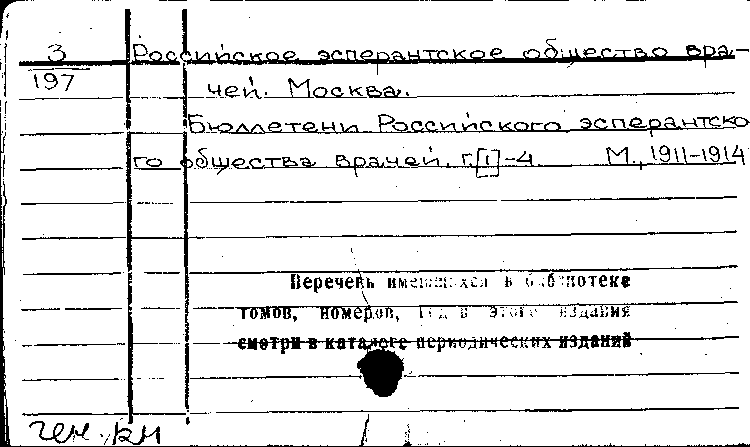 3
197
Российское эсперантское общество вра-
чей. Москва.
Бюллетени Российского эсперантско
го общества врачей. г.[1]-4. М., 1911-1914
Перечень имеющихся в библиотеке
томов, номеров, год в этого издания
смотри в каталоге периодических изданий